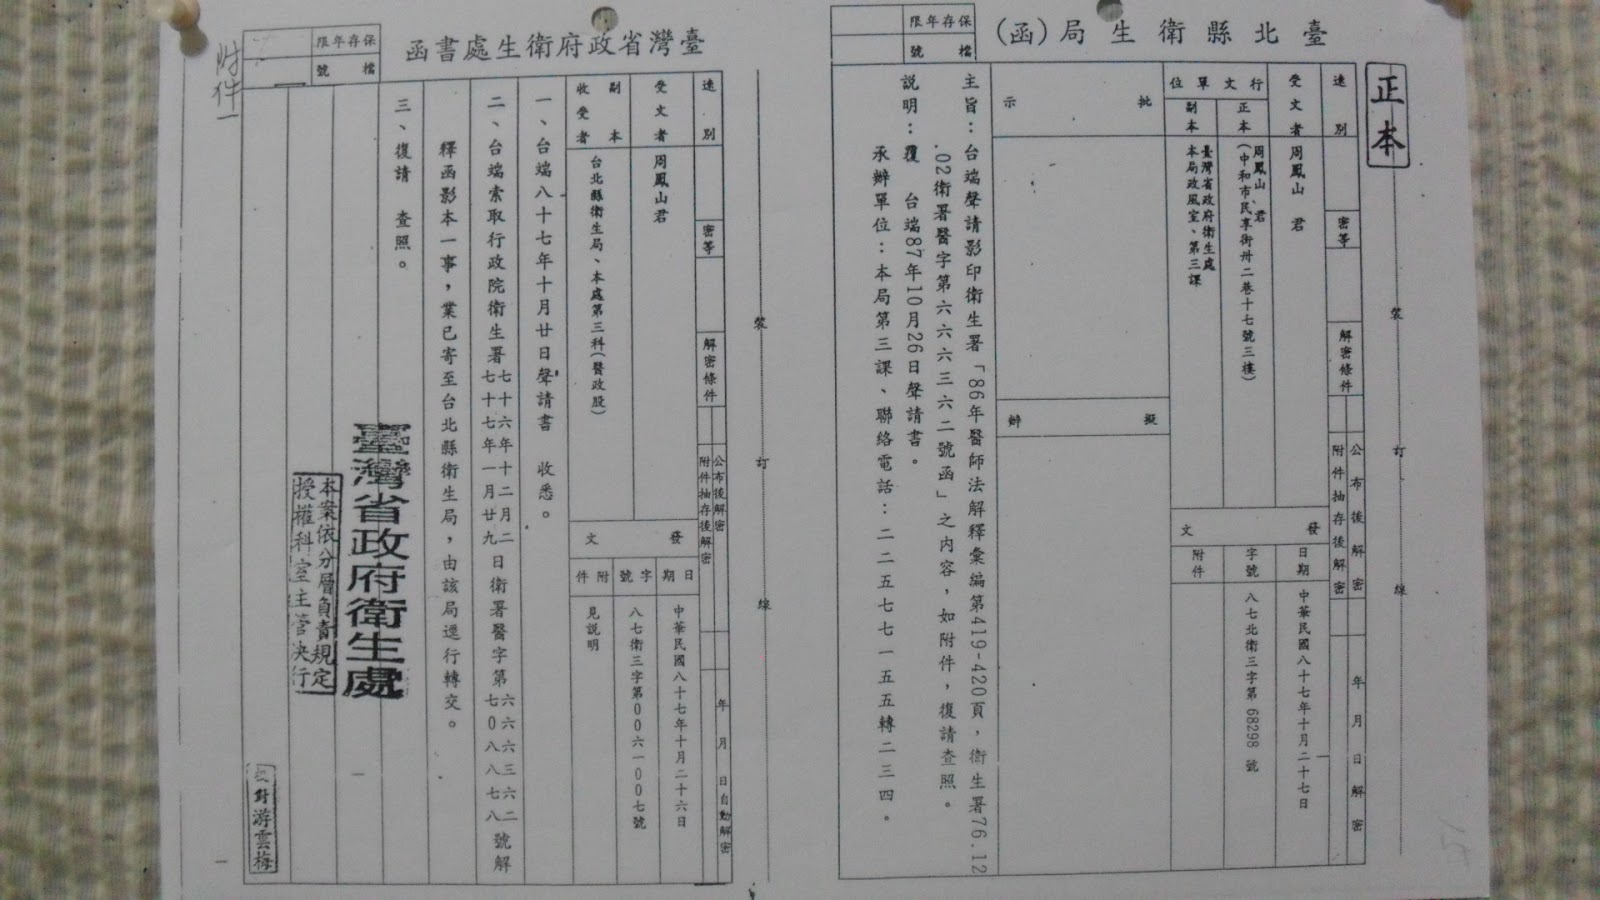 正本
臺北縣衛生局(函)
保存年限
檔號
速別
密等
解密條件
公布後解密
附件抽存後解密
年月日解密
受文者
周鳳山 君
行文單位
正本
周鳳山、君
(中和市民享街卅二巷十七號三樓)
副本
臺灣省政府衛生處
本局政風室、第三課
發文
日期
中華民國八十七年十月二十七日
字號
八七北衛三字第68298號
附件
批示
擬辦
主旨：台端聲請影印衛生署「86年醫師法解釋彙編第419-420頁，衛生署76.12
.02衛署醫字第六六六三六二號函」之內容，如附件，復請查照。
說明：覆 台端87年10月26日聲請書。
承辦單位：本局第三課、聯絡電話：二二五七七一五五轉二三四。
裝
訂
線
附件一
臺灣省政府衛生處書函
保存年限
檔號
速別
密等
解密條件
公布後解密
附件抽存後解密
年月日自動解密
受文者
周鳳山君
副本收受者
台北縣衛生局、本處第三科(醫政股)
發文
日期
中華民國八十七年十月二十六日
字號
八七衛三字第00六一00七號
附件
見說明
一、台端八十七年十月廿日聲請書 收悉。
二、台端索取行政院衛生署七十六年十二月二日衛署醫字第六六六三六二號解
七十七年一月廿九 七0八八七八
釋函影本一事，業已寄至台北縣衛生局，由該局逕行轉交。
三、復請 查照。
臺灣省政府衛生處
本案依分層負責規定
授權科室主管決行
校對游雲梅
裝
訂
線